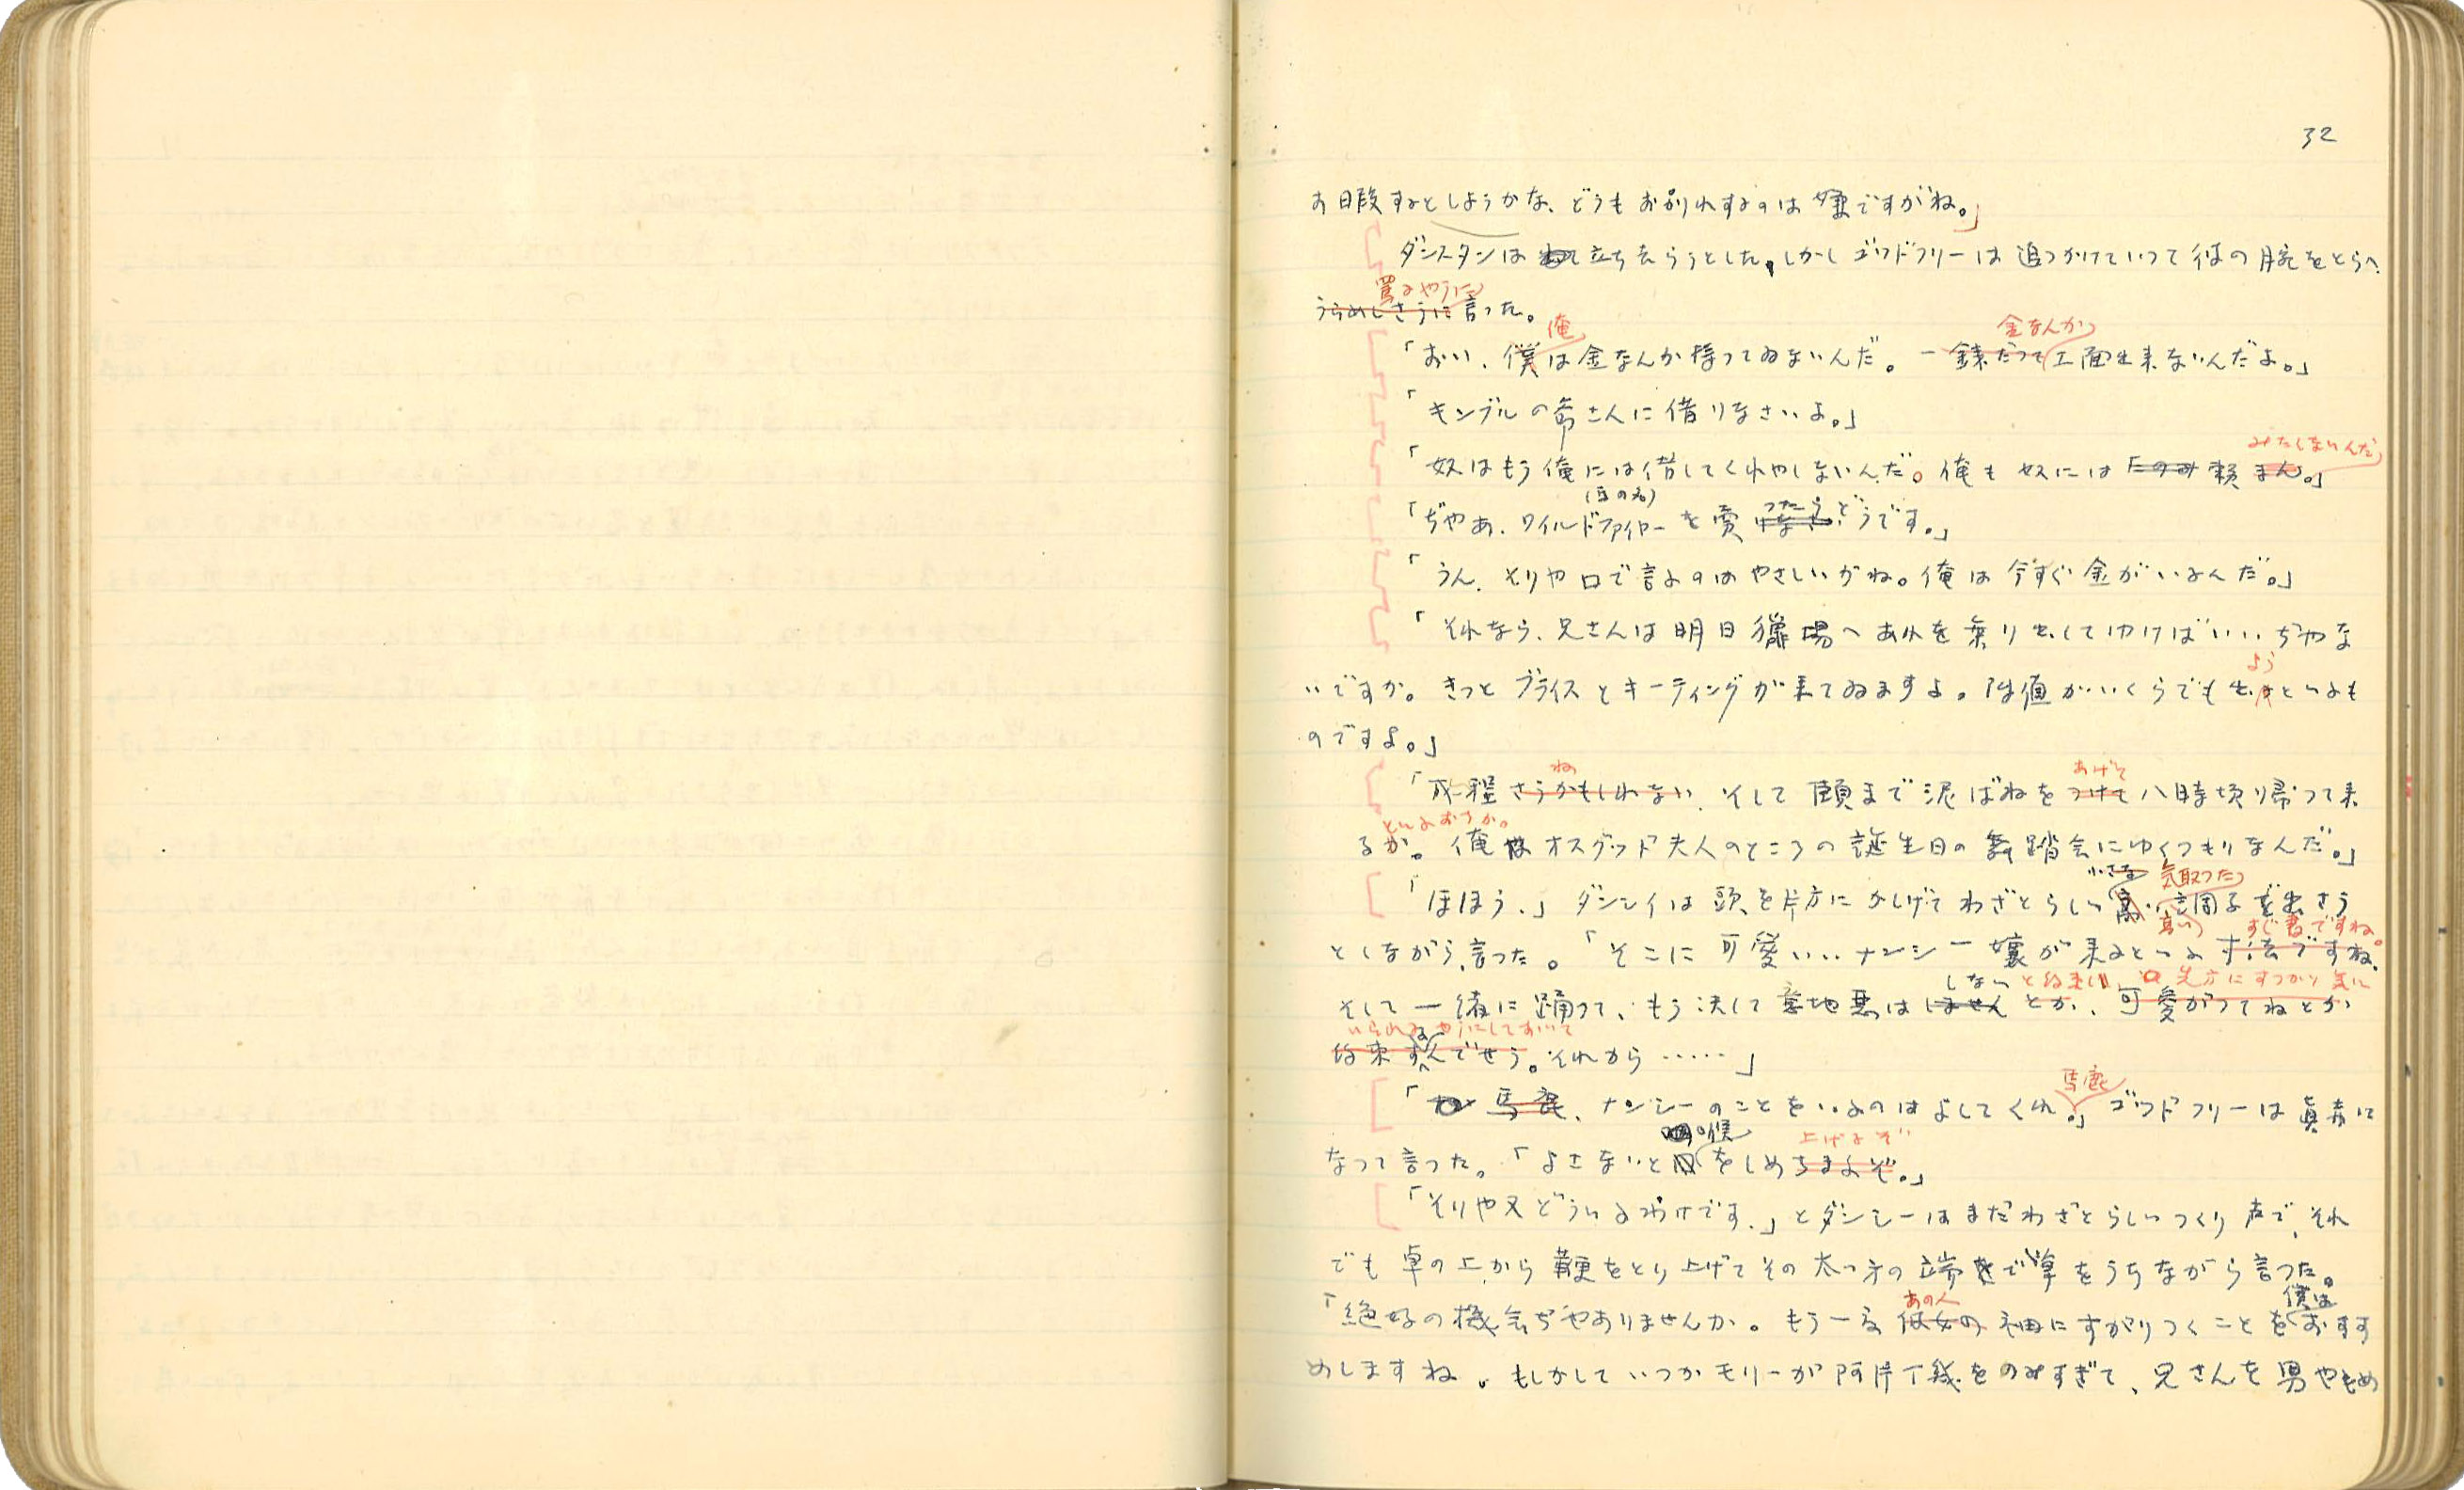 32
お暇するとしようかな、どうもお別れするのは嫌ですがね。」
ダンスタンは立ち去らうとした。しかしゴッドフリーは追つかけていつて彼の腕をとらへ、
罵るやうに
うらめしさうに言つた。
俺 金なんか
「おい、僕は金なんか持つてゐないんだ。一銭だつて工面出来ないんだよ。」
「キンブルの爺さんに借りなさいよ。」
みたくないんだ
「奴はもう俺には借してくれやしないんだ。俺も奴にはたのみ頼まん。」
(馬の名) つたら
「ぢやあ、ワイルドファイヤーを賣りなさいどうです。」
「うん、そりや口で言ふのはやさしいがね。俺は今すぐ金がいるんだ。」
「それなら、兄さんは明日獵場へあれを乗り出してゆけばいいぢやな
よう
いですか。きつとブライスとキーティングが来てゐますよ。付値がいくらでも出すといふも
のですよ。」
ね あげて
「成程さうかもしれない、そして頤まで泥ばねをつけて八時頃帰つて来
といふおちか。
るか。俺はオスグッド夫人のところの誕生日の舞踏会にゆくつもりなんだ。」
小さな 気取つた
「ほほう、」ダンシイは頭を片方にかしげてわざとらしい高い調子を出さう
高い すぐ書ですね。
としながら言つた。「そこに可愛いいナンシー嬢が来るといふ寸法ですね、
しない と約束し 先方にすつかり気に
そして一緒に踊つて、もう決して意地悪はしませんとか、可愛がつてねとか
いられるやうにしておいて
約束するんでせう。それから……」
馬鹿
「馬鹿、ナンシーのことをいふのはよしてくれ。」ゴッドフリーは真赤に
咽喉 上げるぞ
なつて言つた。「よさないと口をしめちまふぞ。」
「そりや又どういふわけです、」とダンシーはまだわざとらしいつくり声で、それ
でも卓の上から鞭をとり上げてその太つ方の端で掌をうちながら言つた。
あの人 僕は
「絶好の機会ぢやありませんか。もう一度彼女の袖にすがりつくことをおすす
めしますね。もしかしていつかモリーが阿片丁幾をのみすぎて、兄さんを男やもめ